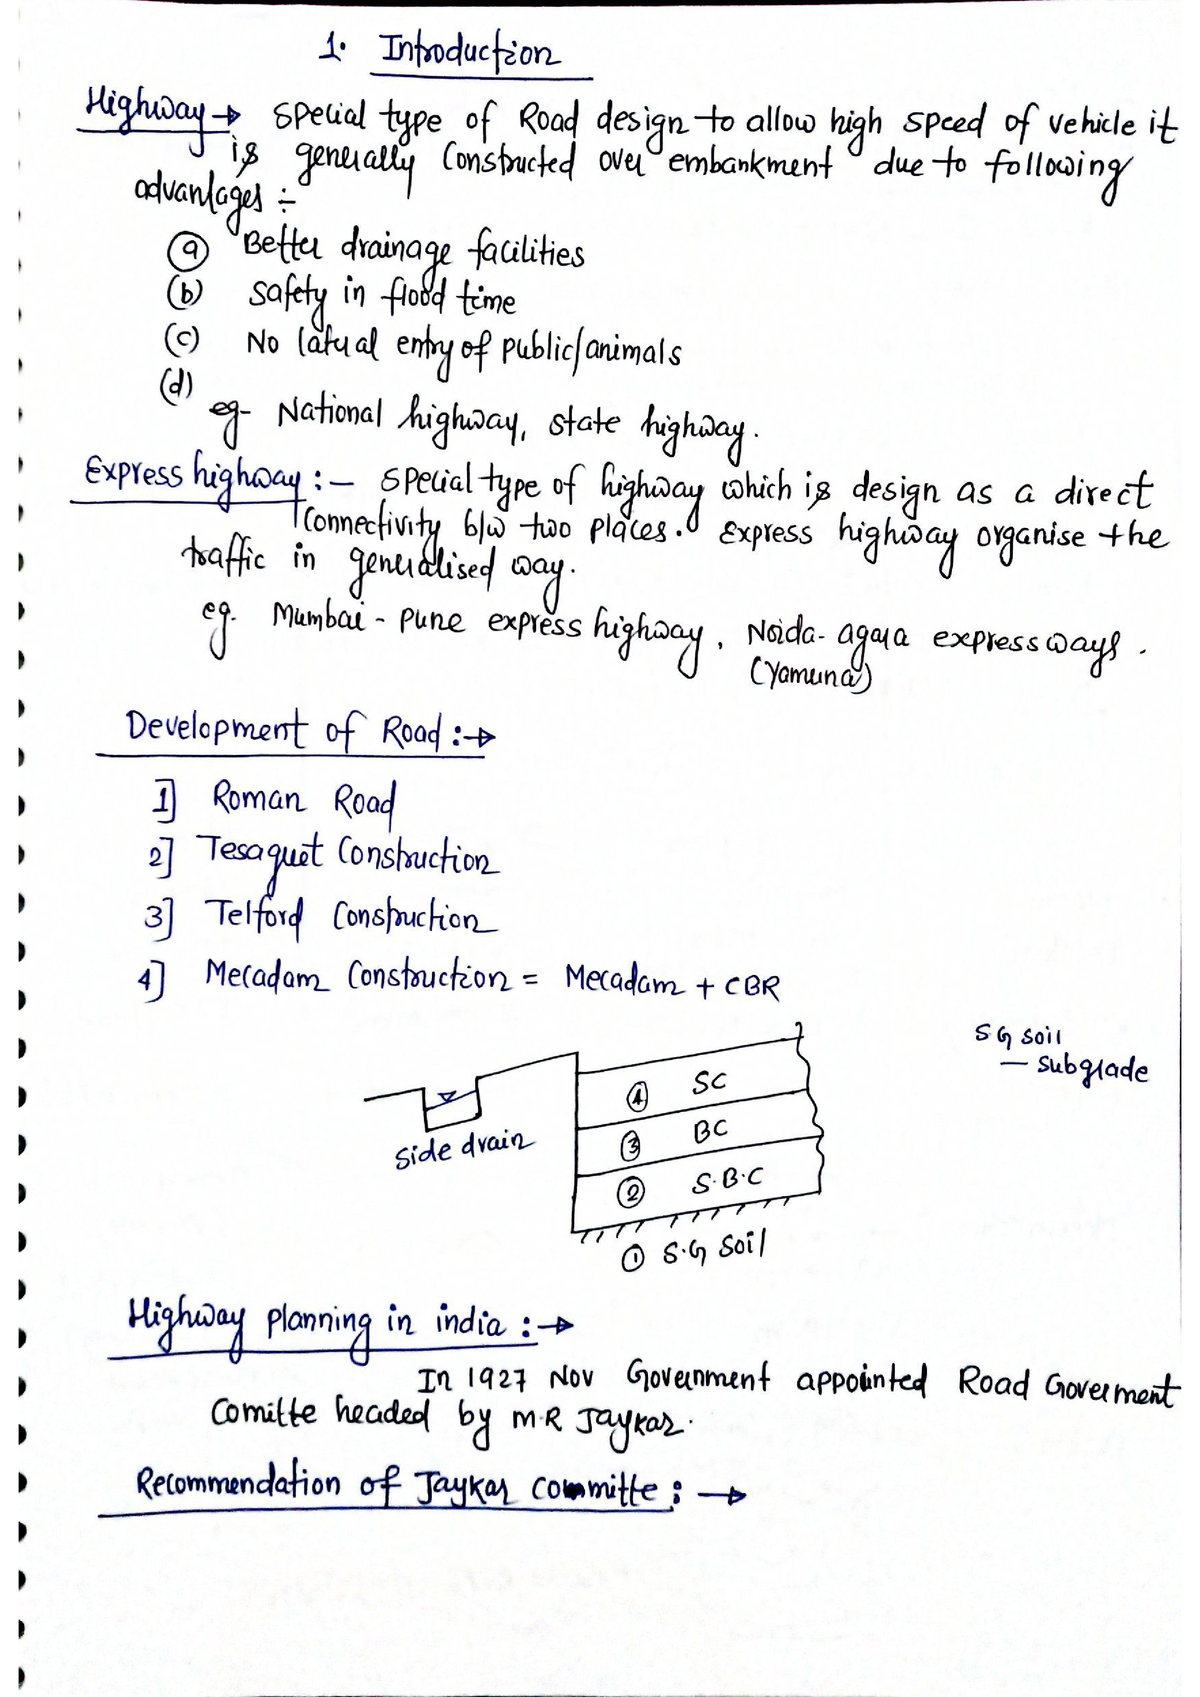 1. Introduction
Highway → special type of Road design to allow high speed of vehicle it
is generally constructed over embankment due to following
advantages :-
(a) Better drainage facilities
(b) safety in flood time
(c) No lateral entry of public/animals
(d)
eg- National highway, state highway.
Express highway :- special type of highway which is design as a direct
connectivity b/w two places. Express highway organise the
traffic in generalised way.
eg. Mumbai - pune express highway, Noida-agara expressways.
(Yamuna)
Development of Road :→
1] Roman Road
2] Tesaguet Construction
3] Telford Construction
4] Mecadam Construction = Mecadam + CBR
S.G soil
— subgrade
④ SC
③ BC
side drain
② S.B.C
① S.G soil
Highway planning in india :→
In 1927 Nov Government appointed Road Goverment
Comitte headed by M.R Jaykar.
Recommendation of Jaykar committe : →